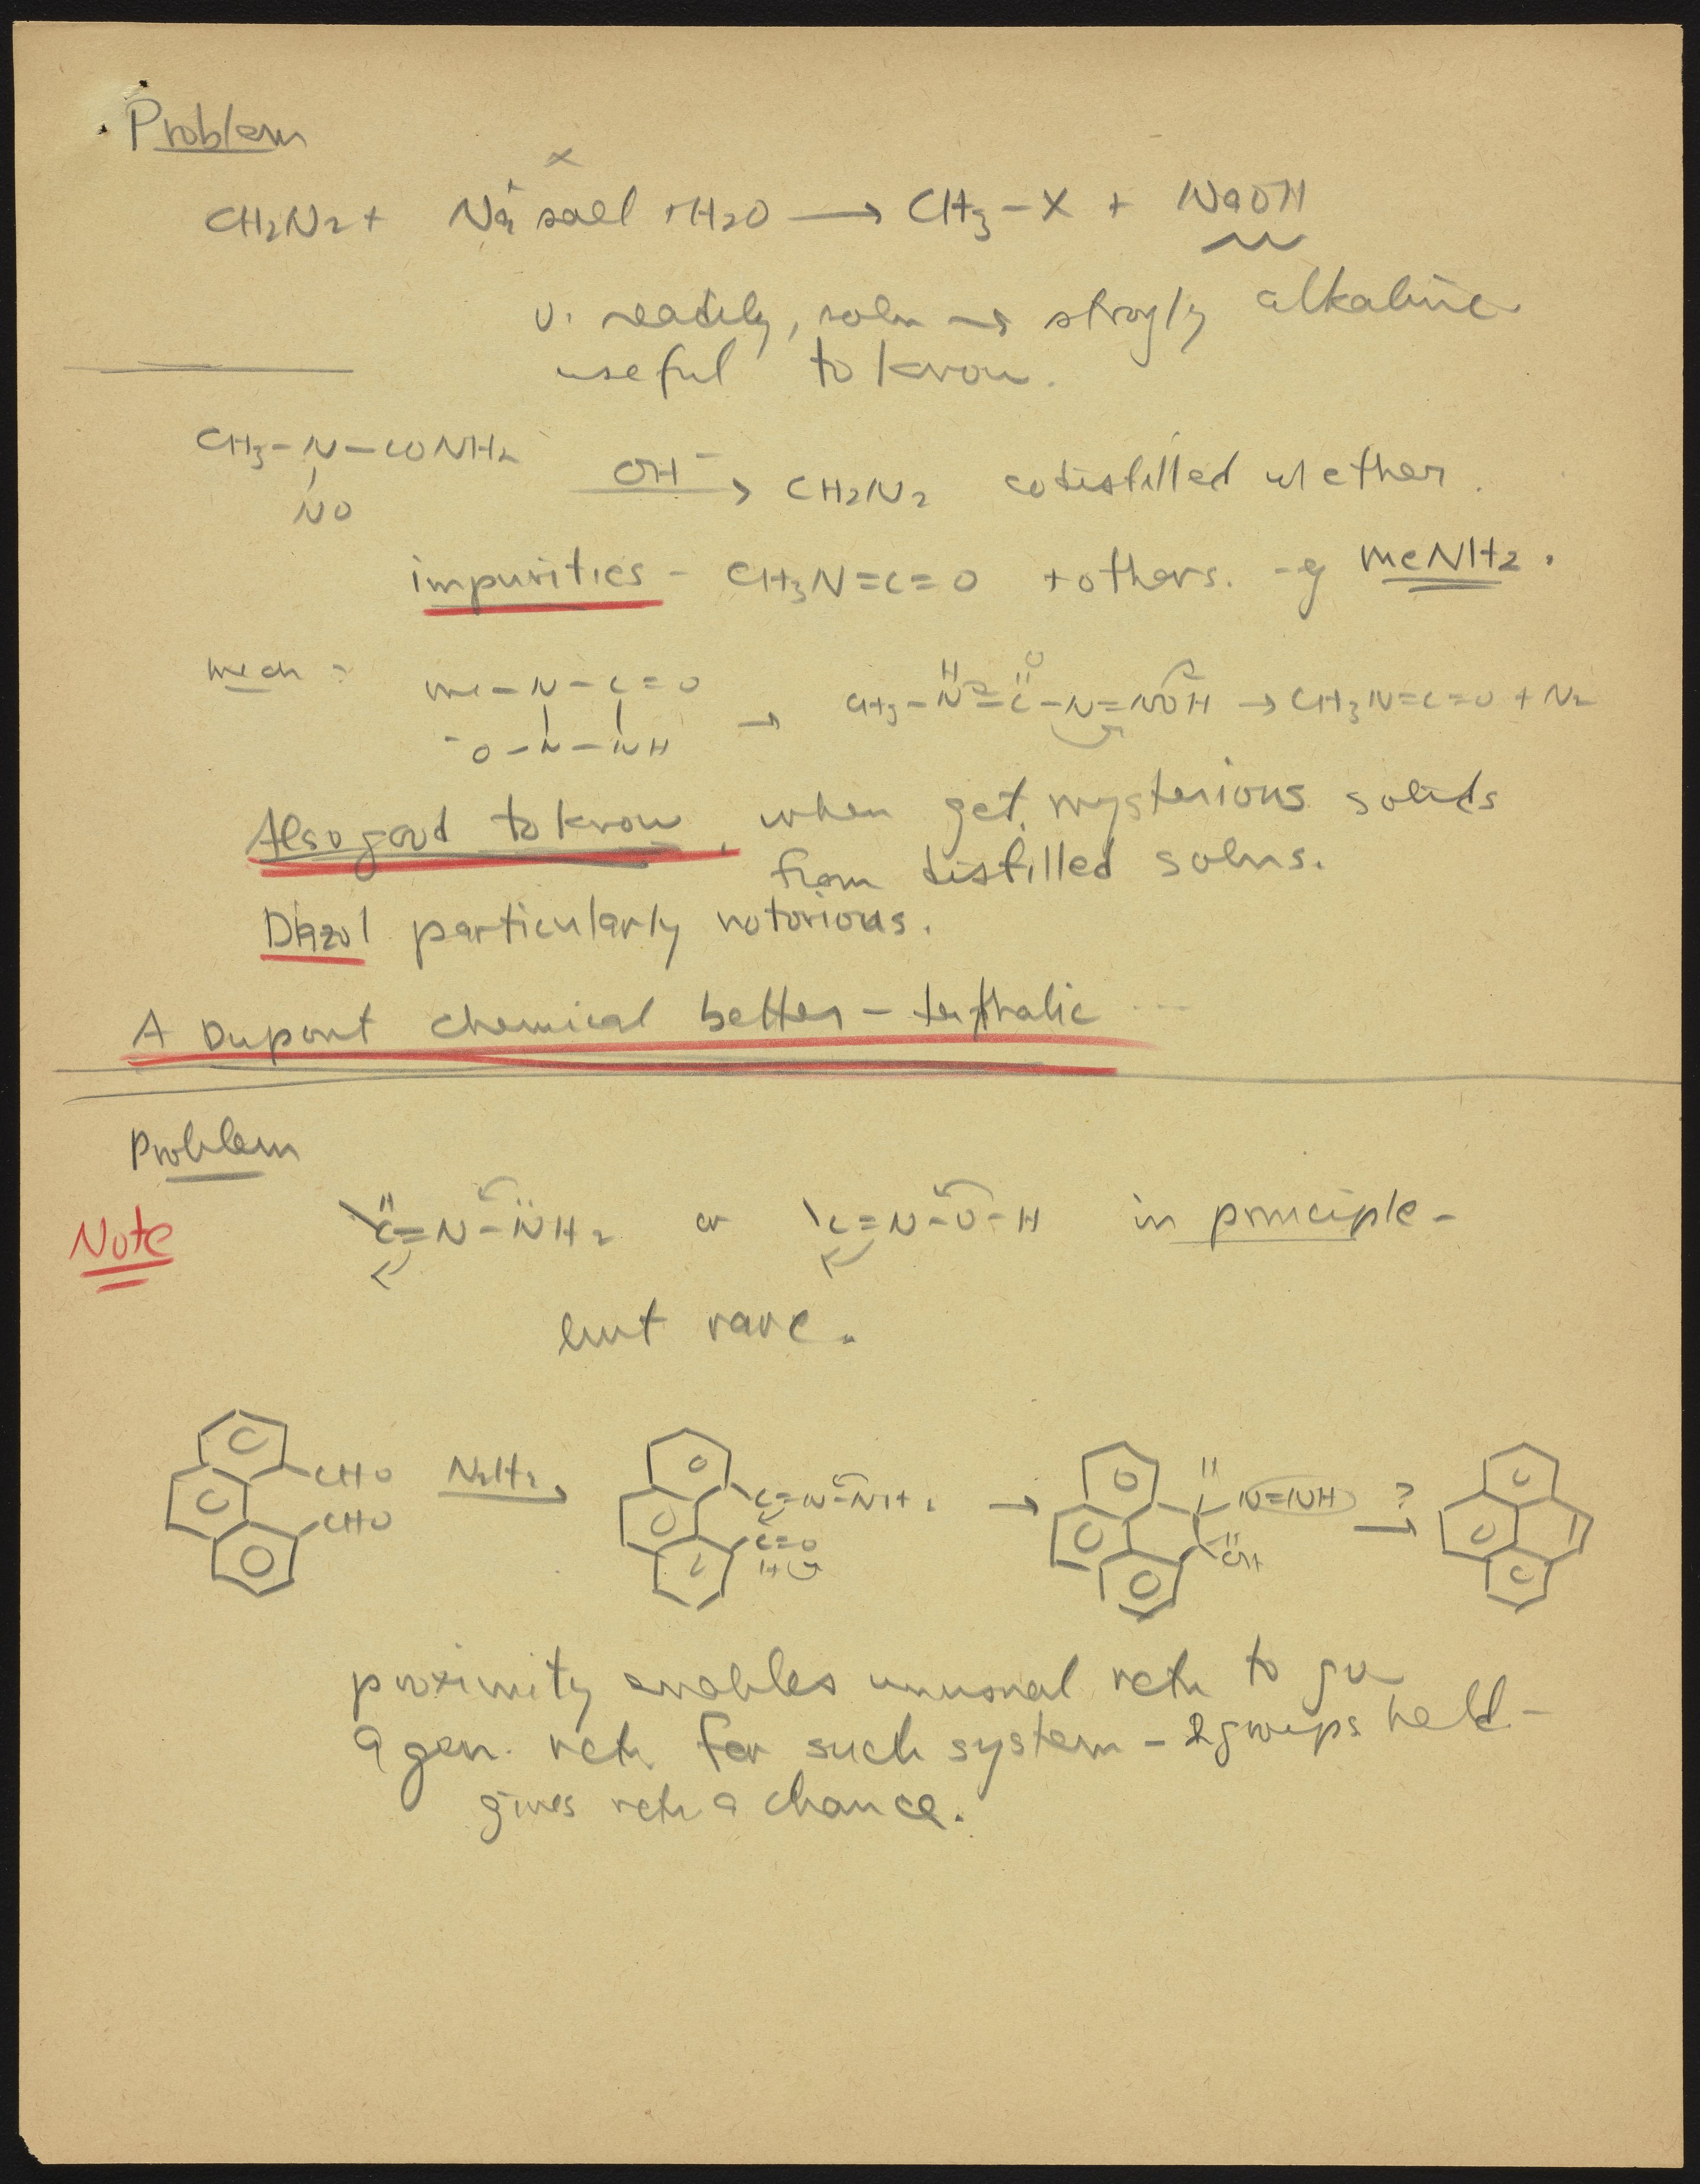 Problem
x
CH2N2 + Na+ salt + H2O → CH3-X + NaOH
v. readily, soln → strogly alkaline
useful to know.
CH3-N-CONH2
NO
OH- → CH2N2 codistilled w/ ether.
impurities - CH3N=C=O + others. -eg MeNH2.
mech:
Me-N-C=O
-O-N-NH
→ CH3-N=C-N=NOH → CH3N=C=O + N2
H O
Also good to know, when get mysterious solids
from distilled solns.
Diazol particularly notorious.
A Dupont chemical better - terthalic ...
Problem
Note
C=N-NH2 or C=N-O-H in principle -
H
but rare.
CHO
CHO
N2H4 →
C=N-NH2
C=O
H
→
H
N=NH
OH
H
? →
proximity enables unusual rctn to go
a gen. rctn for such system - 2 groups held -
gives rctn a chance.